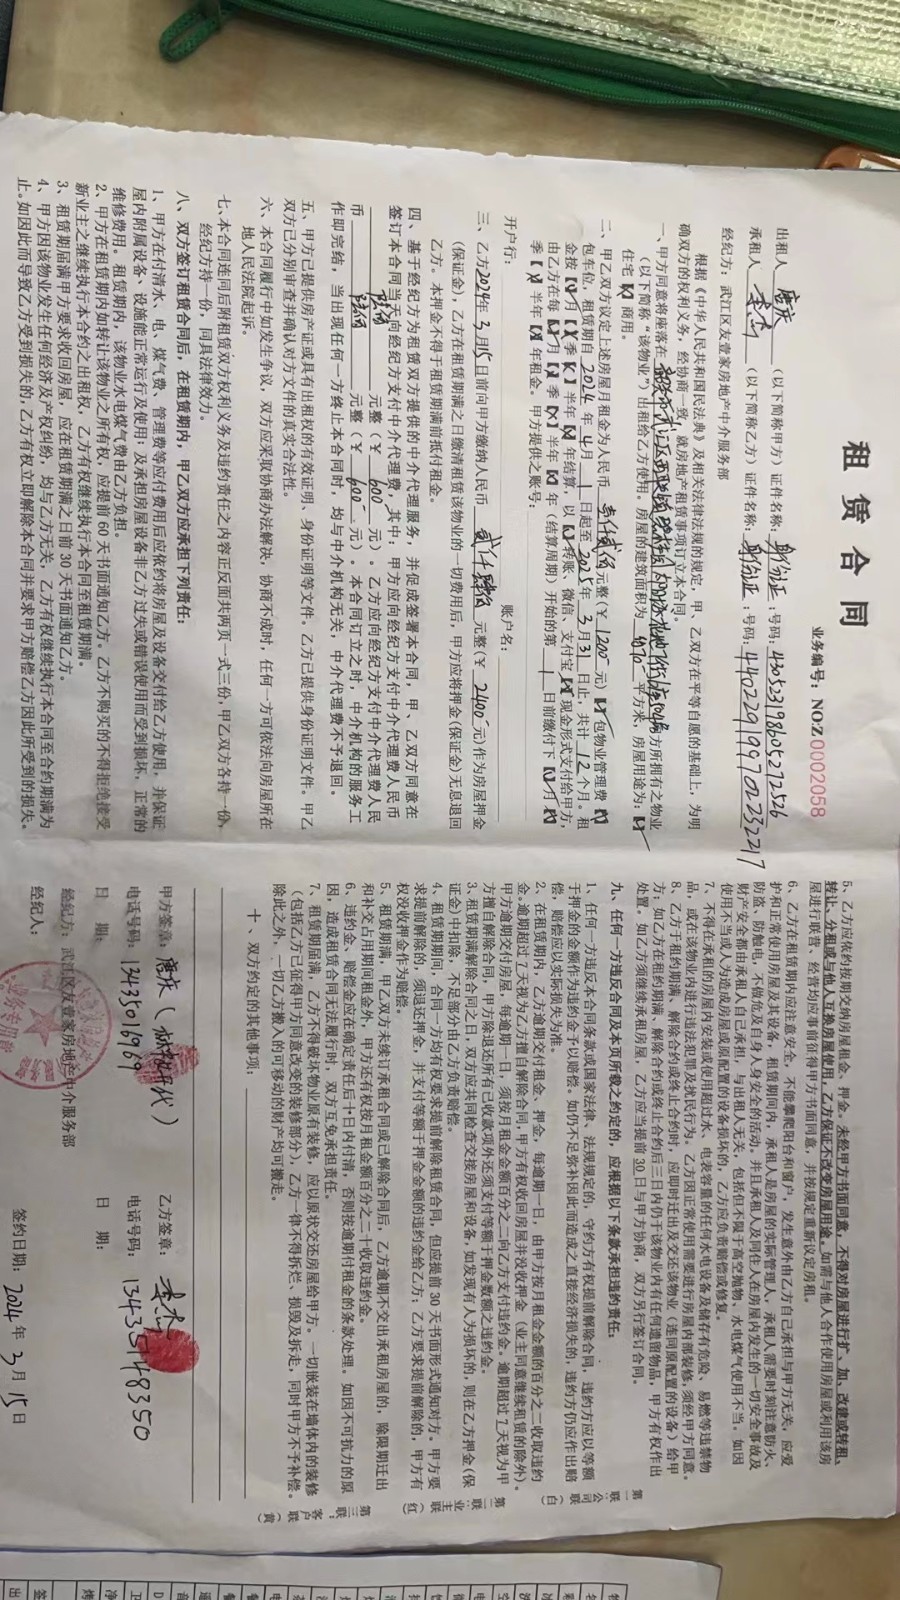 租赁合同
业务编号：NO:Z0002058
出租人 唐庆 （以下简称甲方）证件名称：身份证：号码：430523198605272526
承租人 李杰 （以下简称乙方）证件名称：身份证：号码：440229199701232217
经纪方：武江区友壹家房地产中介服务部
根据《中华人民共和国民法典》及相关法律法规的规定，甲、乙双方在平等自愿的基础上，为明
确双方的权利义务，经协商一致，就房地产租赁事项订立本合同。
一、甲方同意将座落在 方所拥有之物业
（以下简称“该物业”）出租给乙方使用。房屋的建筑面积为 平方米；房屋用途为：
住宅 商用。
二、甲乙双方议定上述房屋月租金为人民币 壹仟贰佰 元整（￥1200 元） 包物业管理费
包车位，租赁期自 2024 年 4 月 1 日起至 2025 年 3 月 31 日止，共计 12 个月。租
金按 月 季 半年 年结算，以 转账、微信、支付宝 现金形式支付给甲方，
由乙方在每 月 季 半年 年（结算周期）开始的第 1 日前缴付下 月
季 半年 年租金。甲方提供之账号：
开户行： 账户名：
三、乙方 2024 年 3 月 15 日前向甲方缴纳人民币 贰仟肆佰 元整（￥ 2400 元）作为房屋押金
（保证金），乙方在租赁期满之日缴清租赁该物业的一切费用后，甲方应将押金（保证金）无息退回
乙方。本押金不得于租赁期满前抵付租金。
四、基于经纪方为租赁双方提供的中介代理服务，并促成签署本合同，甲、乙双方同意在
签订本合同当天向经纪方支付中介代理费，其中：甲方应向经纪方支付中介代理费人民币
陆佰 元整（￥ 600 元）。乙方应向经纪方支付中介代理费人民
币 陆佰 元整（￥ 600 元）。本合同订立之时，中介机构的服务工
作即完结，当出现任何一方终止本合同时，均与中介机构无关，中介代理费不予退回。
五、甲方已提供房产证或具有出租权的有效证明、身份证明等文件。乙方已提供身份证明文件。甲乙
双方已分别审查并确认对方文件的真实合法性。
六、本合同履行中如发生争议，双方应采取协商办法解决，协商不成时，任何一方可依法向房屋所在
地人民法院起诉。
七、本合同连同后附租赁双方权利义务及违约责任之内容正反面共两页一式三份，甲乙双方各持一份，
经纪方持一份，同具法律效力。
八、双方签订租赁合同后，在租赁期内，甲乙双方应承担下列责任：
1、甲方在付清水、电、煤气费、管理费等应付费用后应依约将房屋及设备交付给乙方使用，并保证
屋内附属设备、设施能正常运行及使用；及承担房屋设备非乙方过失或错误使用而受到损坏，正常的
维修费用。租赁期内，该物业水电煤气费由乙方负担。
2、甲方在租赁期内如转让该物业之所有权，应提前 60 天书面通知乙方。乙方不购买的不得拒绝接受
新业主之继续执行本合约之出租权，乙方有权继续执行本合同至租赁期满。
3、租赁期届满甲方要求收回房屋，应在租赁期满之日前 30 天书面通知乙方。
4、甲方因该物业发生任何经济及产权纠纷，均与乙方无关，乙方有权继续执行本合同至合约期满为
止。如因此而导致乙方受到损失的，乙方有权立即解除本合同并要求甲方赔偿乙方因此所受到的损失。
5、乙方应依约按期交纳房屋租金、押金，未经甲方书面同意，不得对房屋进行扩、加、改建或转租、
转让、分租或与他人互换房屋使用，乙方保证不改变房屋用途。如需与他人合作使用房屋或利用该房
屋进行联营、经营均应事前征得甲方书面同意，并按规定重新议定房租。
6、乙方在租赁期内应注意安全，不能攀爬阳台和窗户，发生意外由乙方自己承担与甲方无关，应爱
护和正常使用房屋及其设备，租赁期间内，承租人是房屋的实际管理人，承租人需要时刻注意防火、
防盗、防触电，不做危及自身人身安全的活动，并且承租人及同住人在房屋内发生的一切安全事故及
财产安全都由承租人自己承担，与出租人无关，包括但不限于高空抛物、水电煤气使用不当。如因
使用不当或人为造成房屋或原配置的设备损坏的，乙方应负责赔偿或修复。
7、不得在承租的房屋内安装或使用超过水、电表容量的任何水电设备及储存有危险、易燃等违禁物
品，或在该物业内进行违法犯罪及扰民行为。乙方因正常使用需要进行房屋内部装修，须经甲方同意。
8、乙方于租约期满、解除合约或终止合约时，应即时迁出及交还该物业（连同原配置的设备）给甲
方；如乙方在租约期满、解除合约或终止合约后三日内仍于该物业内有任何遗留物品，甲方有权作出
处置。如乙方须继续承租房屋，乙方应当提前 30 日与甲方协商，双方另行签订合同。
九、任何一方违反合同及本页所载之约定的，应根据以下条款承担违约责任：
1、任何一方违反本合同条款或国家法律、法规规定的，守约方有权提前解除合同，违约方应以等额
于押金的金额作为违约金予以赔偿，如仍不足弥补因此而造成之直接经济损失的，违约方仍应作出赔
偿，赔偿应以实际损失为准。
2、在租赁期内，乙方逾期交付租金、押金，每逾期一日，由甲方按月租金金额的百分之二收取违约
金。逾期超过七天视为乙方擅自解除合同，甲方有权收回房屋并没收押金（业主同意继续租赁的除外）。
甲方逾期交付房屋，每逾期一日，须按月租金金额百分之二向乙方支付违约金。逾期超过 7 天视为甲
方擅自解除合同，甲方除退还所有已收款项外还须支付等额于押金数额之违约金。
3、租赁期满解除合同之日，双方应共同检查交接房屋和设备，如发现有人为损坏的，则在乙方押金（保
证金）中扣除，不足部分由乙方负责赔偿。
4、租赁期期间，合同一方均有权要求提前解除租赁合同，但应提前 30 天书面形式通知对方。甲方要
求提前解除的，须退还押金，并支付等额于押金金额的违约金给乙方；乙方要求提前解除的，甲方有
权没收押金作为赔偿。
5、租赁期满，甲乙双方未续订承租合同或已解除合同后，乙方逾期不交出承租房屋的，除限期迁出
和补交占用期间租金外，甲方还有权按月租金额百分之二十收取违约金。
6、违约金、赔偿金应在确定责任后十日内付清，否则按逾期付租金的条款处理。如因不可抗力的原
因，造成租赁合同无法履行时，双方互免承担责任。
7、租赁期届满，乙方不得破坏物业原有装修，应以原状交还房屋给甲方。一切嵌装在墙体内的装修
（包括乙方已征得甲方同意改变的装修部分），乙方一律不得拆烂、损毁及拆走，同时甲方不予补偿。
除此之外，一切乙方搬入的可移动的财产均可搬走。
十、双方约定的其他事项：
甲方签章：唐庆 乙方签章：李杰
电话号码：13435016969 电话号码：13435148350
日 期： 日 期：
经纪方：武江区友壹家房地产中介服务部
经纪人： 签约日期：2024 年 3 月 15 日
第一联：公司（白）
第二联：业主（红）
第三联：客户（黄）